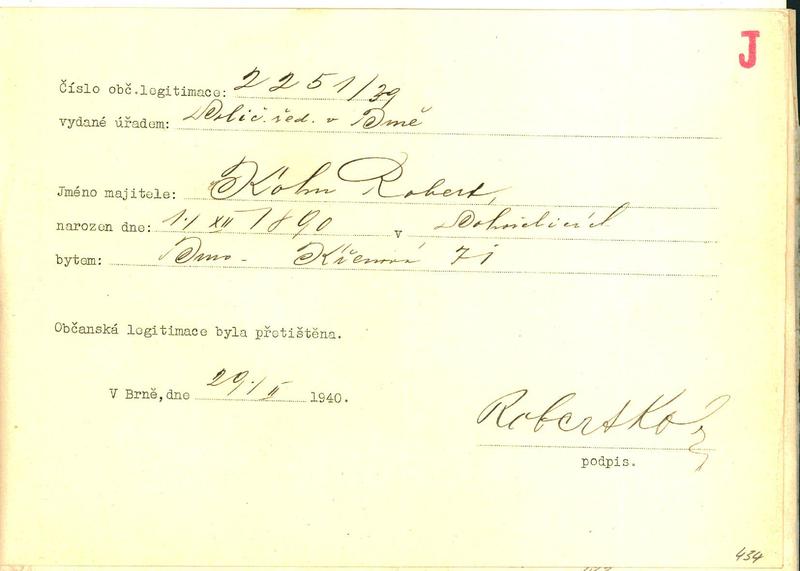 J
Číslo obč.legitimace: 2251/39
vydané úřadem: Polic. řed. v Brně
Jméno majitele: Kohn Robert,
narozen dne: 1./XII 1890 v
bytem: Brno - Křenová 71
Občanská legitimace byla přetištěna.
V Brně,dne 29./II 1940.
Robert Kohn
podpis.
434